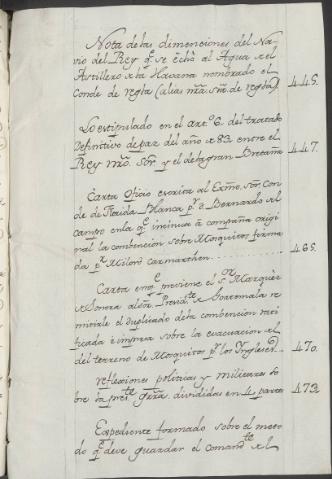 Nota de las dimenciones del Na-
vio del Rey q.e se êcho al Agua ê el
Astillero de la Havana nombrado el
Conde de regla (alias nrâ. Srâ. de regla) 445.
Lo estipulado en el art.o 6. del tratado
Definitivo de paz del año de 83. entre el
Rey nrô. Sôr. y el de la gran Bretaña 447.
Carta Oficio escrita al Exmô. Sôr. Con-
de de Florida blanca p.r d.n Bernardo del
Campo en la q.e incinua â compaña origi-
nal la combencion sobre Mosquitos forma-
da p.r Milord Carmarthen 465.
Carta en q.e previene el S.or Marques
de Sonora al Sôr. Presid.te de Goatemala re-
mitirle el duplicado de la combencion rati-
ficada ê impresa sobre la evacuacion del
del terreno de Mosquitos p.r los Yngleses 470.
reflexiones politicas y militares so-
bre la pres.te grrâ. divididas en 4 partes 473.
Expediente formado sobre el meto-
do q.e deve guardar el comand.te del